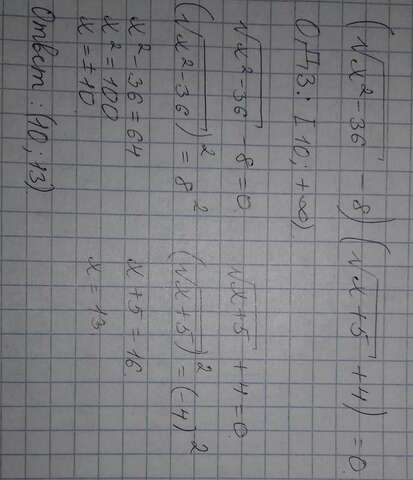 (√x²-36 - 8)(√x+5 + 4) = 0.
ОДЗ: [10; +∞).
√x²-36 - 8 = 0. √x+5 + 4 = 0.
(√x²-36)² = 8² (√x+5)² = (-4)²
x²-36 = 64 x+5 = 16.
x² = 100 x = 13
x = ±10.
Ответ: (10; 13)